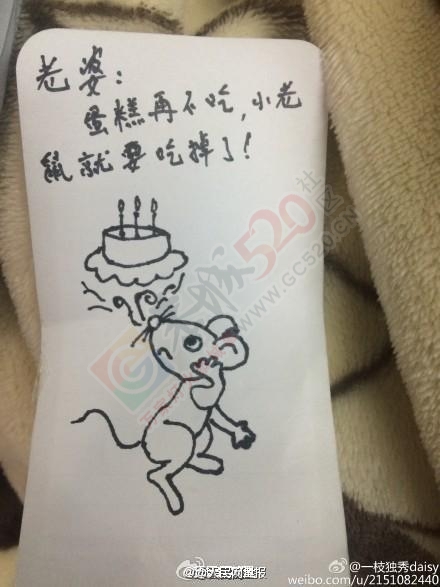 老婆：
蛋糕再不吃，小老
鼠就要吃掉了！
520
社区
WWW.GC520.CN
@一枝独秀daisy
weibo.com/u/2151082440